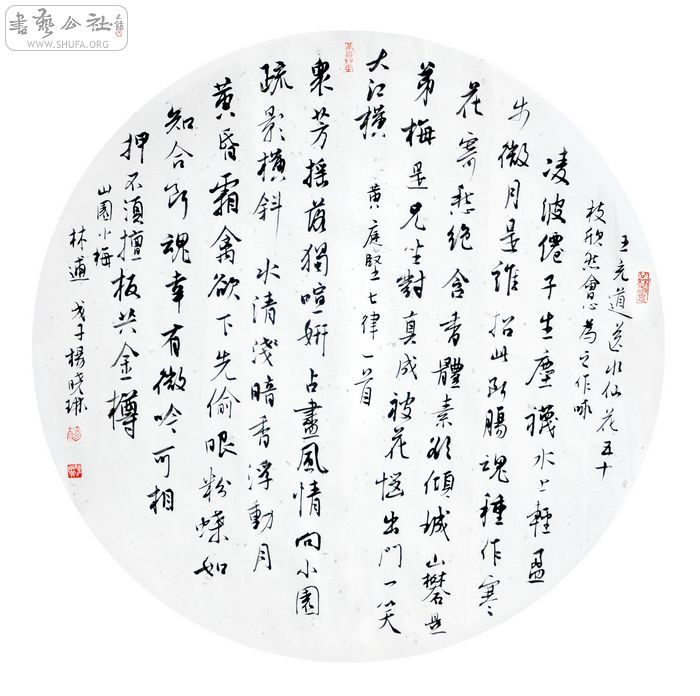 書藝公社
WWW.SHUFA.ORG
王充道送水仙花五十
枝欣然會心為之作咏
凌波僊子生塵襪水上輕盈
步微月是誰招此断腸魂種作寒
花寄愁絶含香體素欲傾城山礬是
弟梅是兄坐對真成被花惱出門一笑
大江横 黄庭堅七律一首
衆芳摇落獨喧妍占盡風情向小園
疏影横斜水清淺暗香浮動月
黄昏霜禽欲下先偷眼粉蝶如
知合断魂幸有微吟可相
押不須擅板共金樽
山園小梅
林逋 戊子楊曉琳